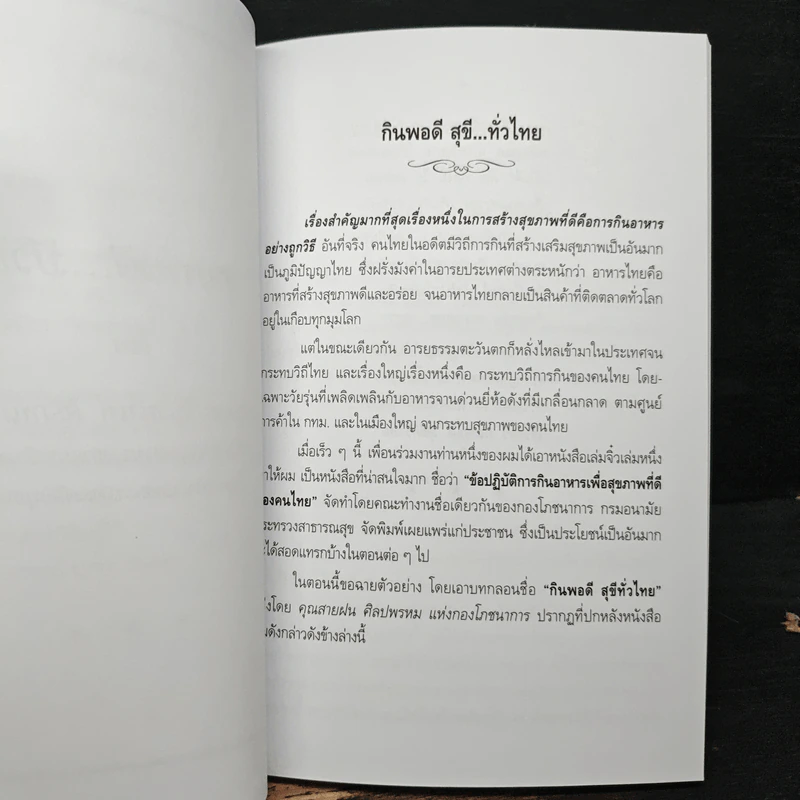 กินพอดี สุขี...ทั่วไทย
เรื่องสำคัญมากที่สุดเรื่องหนึ่งในการสร้างสุขภาพที่ดีคือการกินอาหาร
อย่างถูกวิธี อันที่จริง คนไทยในอดีตมีวิถีการกินที่สร้างเสริมสุขภาพเป็นอันมาก
เป็นภูมิปัญญาไทย ซึ่งฝรั่งมังค่าในอารยประเทศต่างตระหนักว่า อาหารไทยคือ
อาหารที่สร้างสุขภาพดีและอร่อย จนอาหารไทยกลายเป็นสินค้าที่ติดตลาดทั่วโลก
อยู่ในเกือบทุกมุมโลก
แต่ในขณะเดียวกัน อารยธรรมตะวันตกก็หลั่งไหลเข้ามาในประเทศจน
กระทบวิถีไทย และเรื่องใหญ่เรื่องหนึ่งคือ กระทบวิถีการกินของคนไทย โดย-
เฉพาะวัยรุ่นที่เพลิดเพลินกับอาหารจานด่วนยี่ห้อดังที่มีเกลื่อนกลาด ตามศูนย์
การค้าใน กทม. และในเมืองใหญ่ จนกระทบสุขภาพของคนไทย
เมื่อเร็ว ๆ นี้ เพื่อนร่วมงานท่านหนึ่งของผมได้เอาหนังสือเล่มจิ๋วเล่มหนึ่ง
าให้ผม เป็นหนังสือที่น่าสนใจมาก ชื่อว่า “ข้อปฏิบัติการกินอาหารเพื่อสุขภาพที่ดี
องคนไทย” จัดทำโดยคณะทำงานชื่อเดียวกันของกองโภชนาการ กรมอนามัย
ระทรวงสาธารณสุข จัดพิมพ์เผยแพร่แก่ประชาชน ซึ่งเป็นประโยชน์เป็นอันมาก
ะได้สอดแทรกบ้างในตอนต่อ ๆ ไป
ในตอนนี้ขอฉายตัวอย่าง โดยเอาบทกลอนชื่อ “กินพอดี สุขีทั่วไทย”
ังโดย คุณสายฝน ศิลปพรหม แห่งกองโภชนาการ ปรากฏที่ปกหลังหนังสือ
มดังกล่าวดังข้างล่างนี้